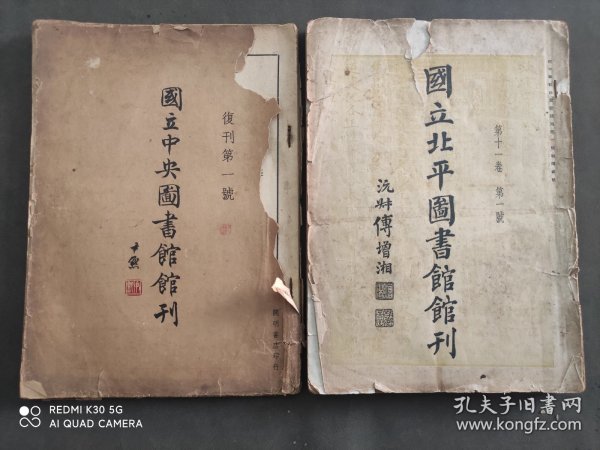 復刊第一號
國立中央圖書館館刊
尹默
開明書店印行
第十一卷 第一號
國立北平圖書館館刊
沅叔傅增湘
REDMI K30 5G
AI QUAD CAMERA
孔夫子旧書网
www.kongfz.com